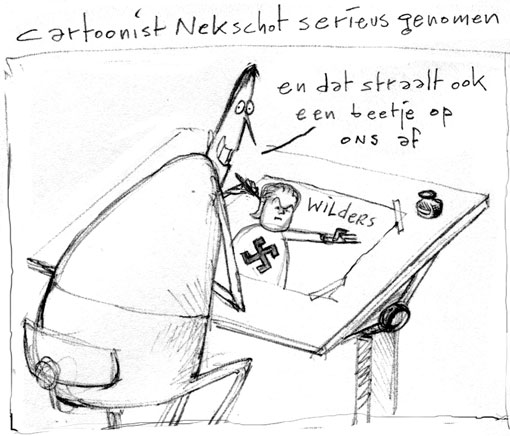 cartoonist Nekschot serieus genomen
en dat straalt ook
een beetje op
ons af
Wilders